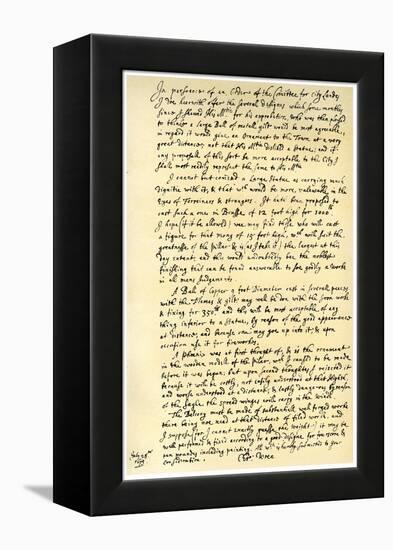 In persuance of an Order of the Comittee for City Landes
I doe heerwith offer the severall designes which some monthes
since I shewed His Matie for his approbation, who was then pleased
to thinke a large Ball of metall gilt would be most agreeable,
in regard it would give an Ornament to the Town at a very
great distance; not that His Matie disliked a Statue; and if
any proposall of this sort be more acceptable to the City I
shall most readily represent the same to His Matie
I cannot but comend a Large Statue as carrying much
dignitie with it, & that wch would be more valewable in the
Eyes of Forreiners & strangers. It hath been proposed to
cast such a one in Brasse of 12 foot high for 1000lb
I hope (if it be allowed) wee may find those who will cast
a figure for that mony of 15 foot high, wch will suit the
greatnesse of the pillar & is (as I take it) the largest at this
day extant; and this would undoubtedly bee the noblest
finishing that can be found answerable to soe goodly a worke
in all mens Judgements.
A Ball of Copper 9 foot Diameter cast in severall peeces
with the Flames & gilt may well be don with the Iron worke
& fixing for 350lb and this will be most acceptable of any
thing inferior to a Statue, by reason of the good appearance
at distance, and because one may goe up into it; & upon
occasion use it for fireworkes.
A phœnix was at first thought of, & is the ornament
in the wooden modell of the pillar, wch I caused to be made
before it was begun; but upon second thoughtes I rejected it
because it will be costly, not easily understood at that Highth,
and worse understood at a distance; & lastly dangerous by reason
of the sayle, the spread winges will carry in the winde.
The Balcony must be made of substantiall well forged worke
there being noe need at that distance of filed worke, and
I suppose (for I cannot exactly guesse the weight) it may be
well performed & fixed according to a good designe for fourscore & ten
poundes including painting. All wch is humbly submitted to your
consideration
July 28th
1675
Chr: Wren